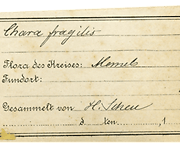 Chara fragilis
Flora des Kreises: Memel
Fundort:
Gesammelt von H. Scheu
d. ten ,1